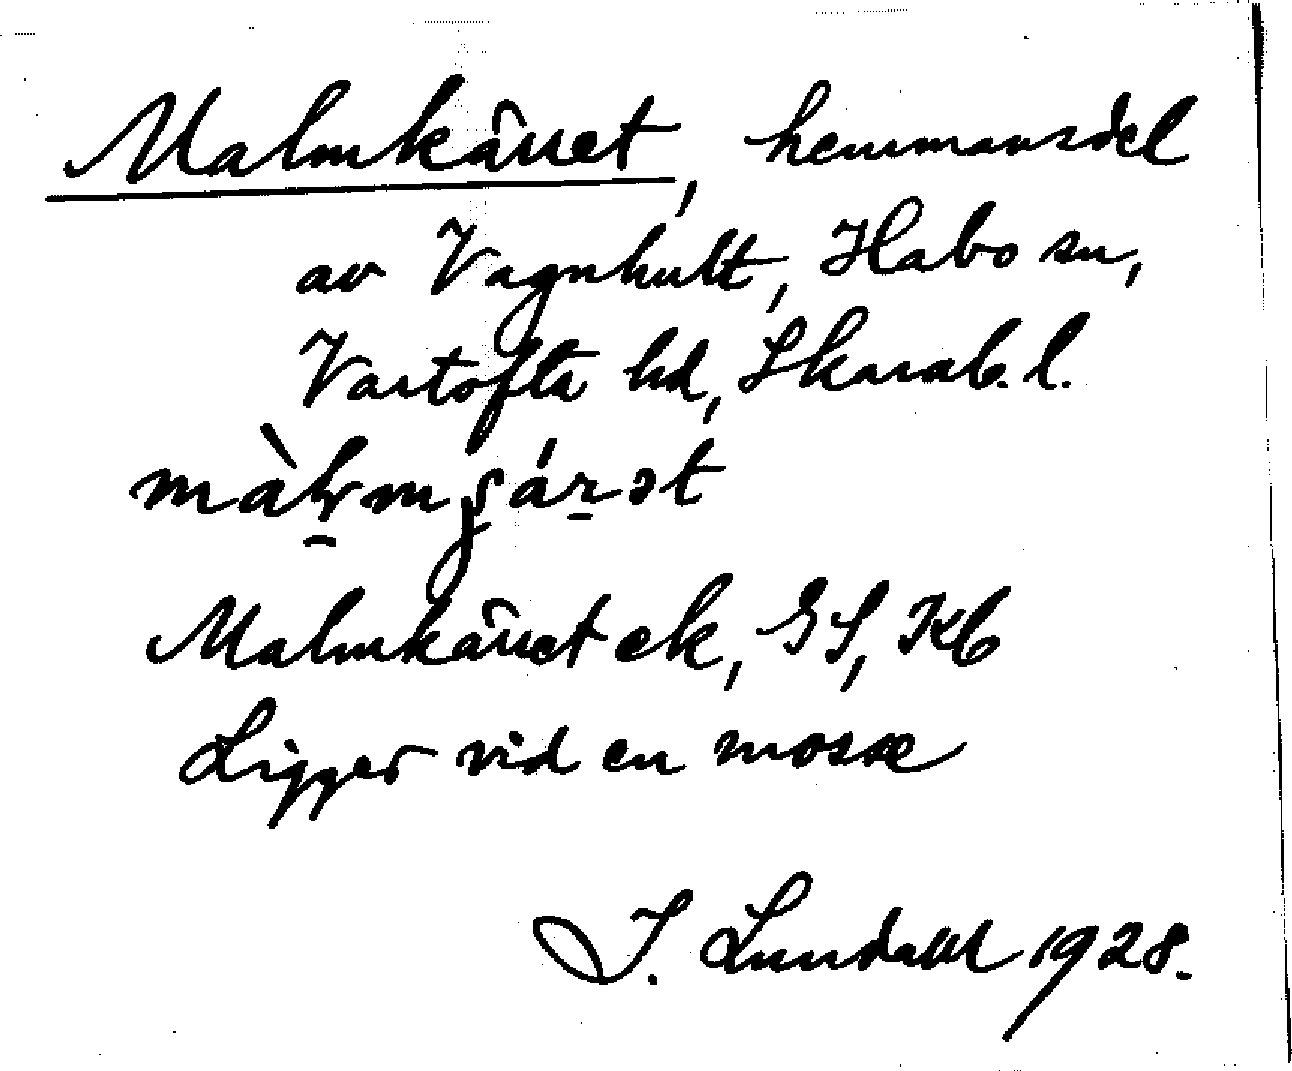 Malmkärret, hemmansdel
av Vagnhult, Habo sn,
Vartofta hd, Skarab. l.
Malmkärret ek, GS, Kb
Ligger vid en mosse
I. Lundahl 1928.